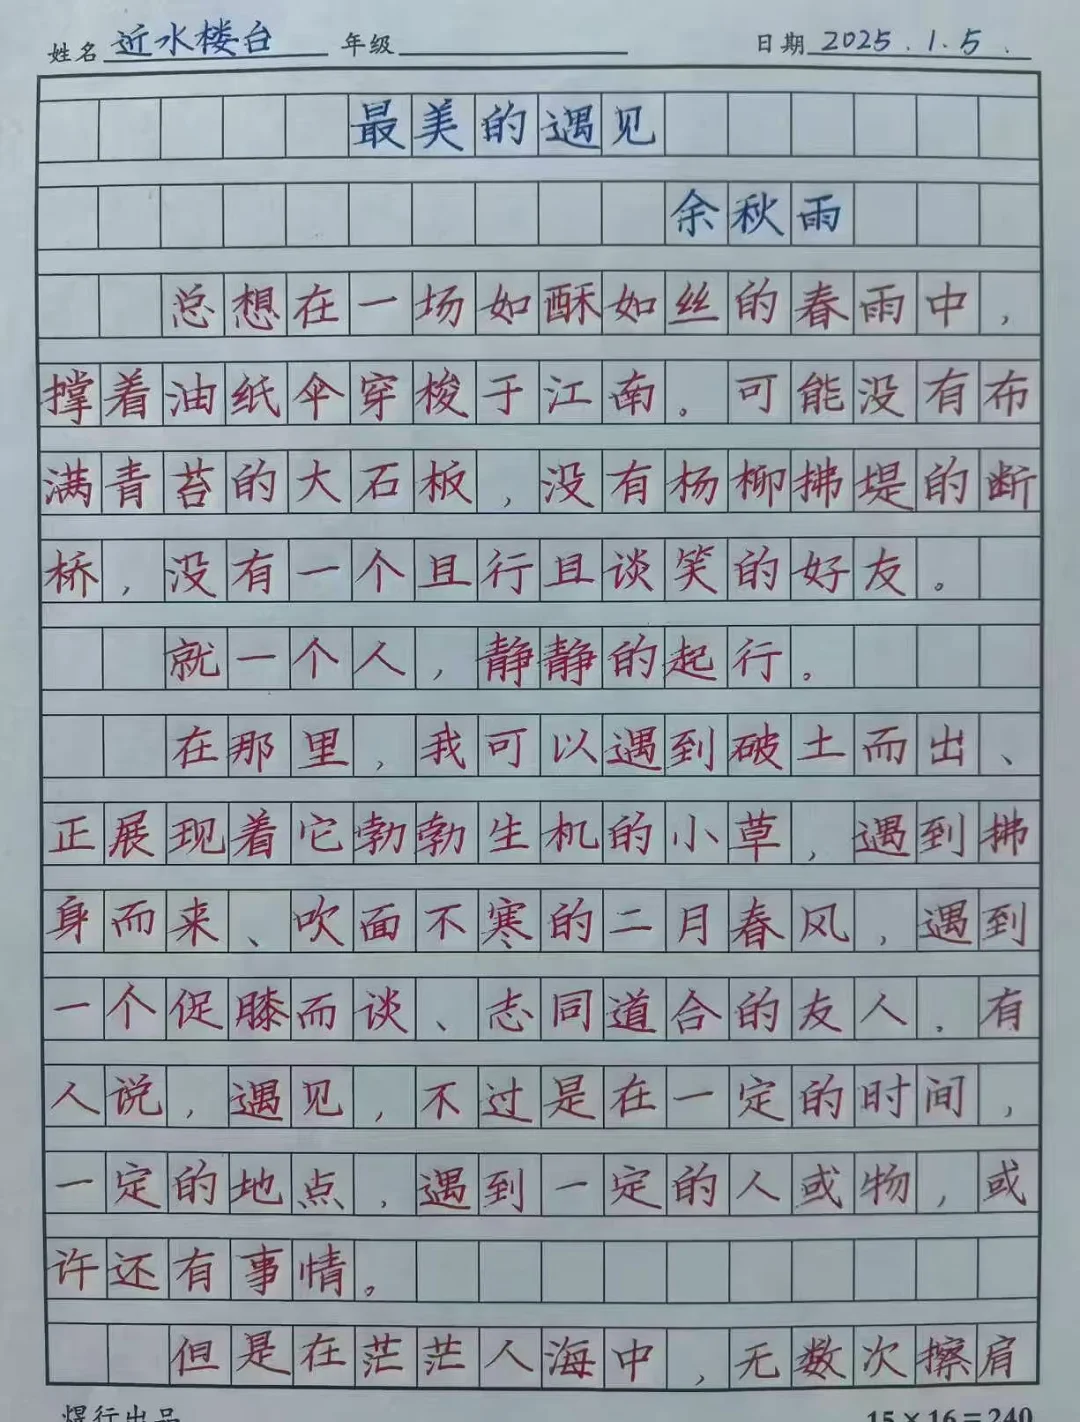 姓名 近水楼台 年级 日期 2025.1.5.
最美的遇见
余秋雨
总想在一场如酥如丝的春雨中，
撑着油纸伞穿梭于江南。可能没有布
满青苔的大石板，没有杨柳拂堤的断
桥，没有一个且行且谈笑的好友。
就一个人，静静的起行。
在那里，我可以遇到破土而出、
正展现着它勃勃生机的小草，遇到拂
身而来、吹面不寒的二月春风，遇到
一个促膝而谈、志同道合的友人。有
人说，遇见，不过是在一定的时间，
一定的地点，遇到一定的人或物，或
许还有事情。
但是在茫茫人海中，无数次擦肩
煜行出品 15×16=240